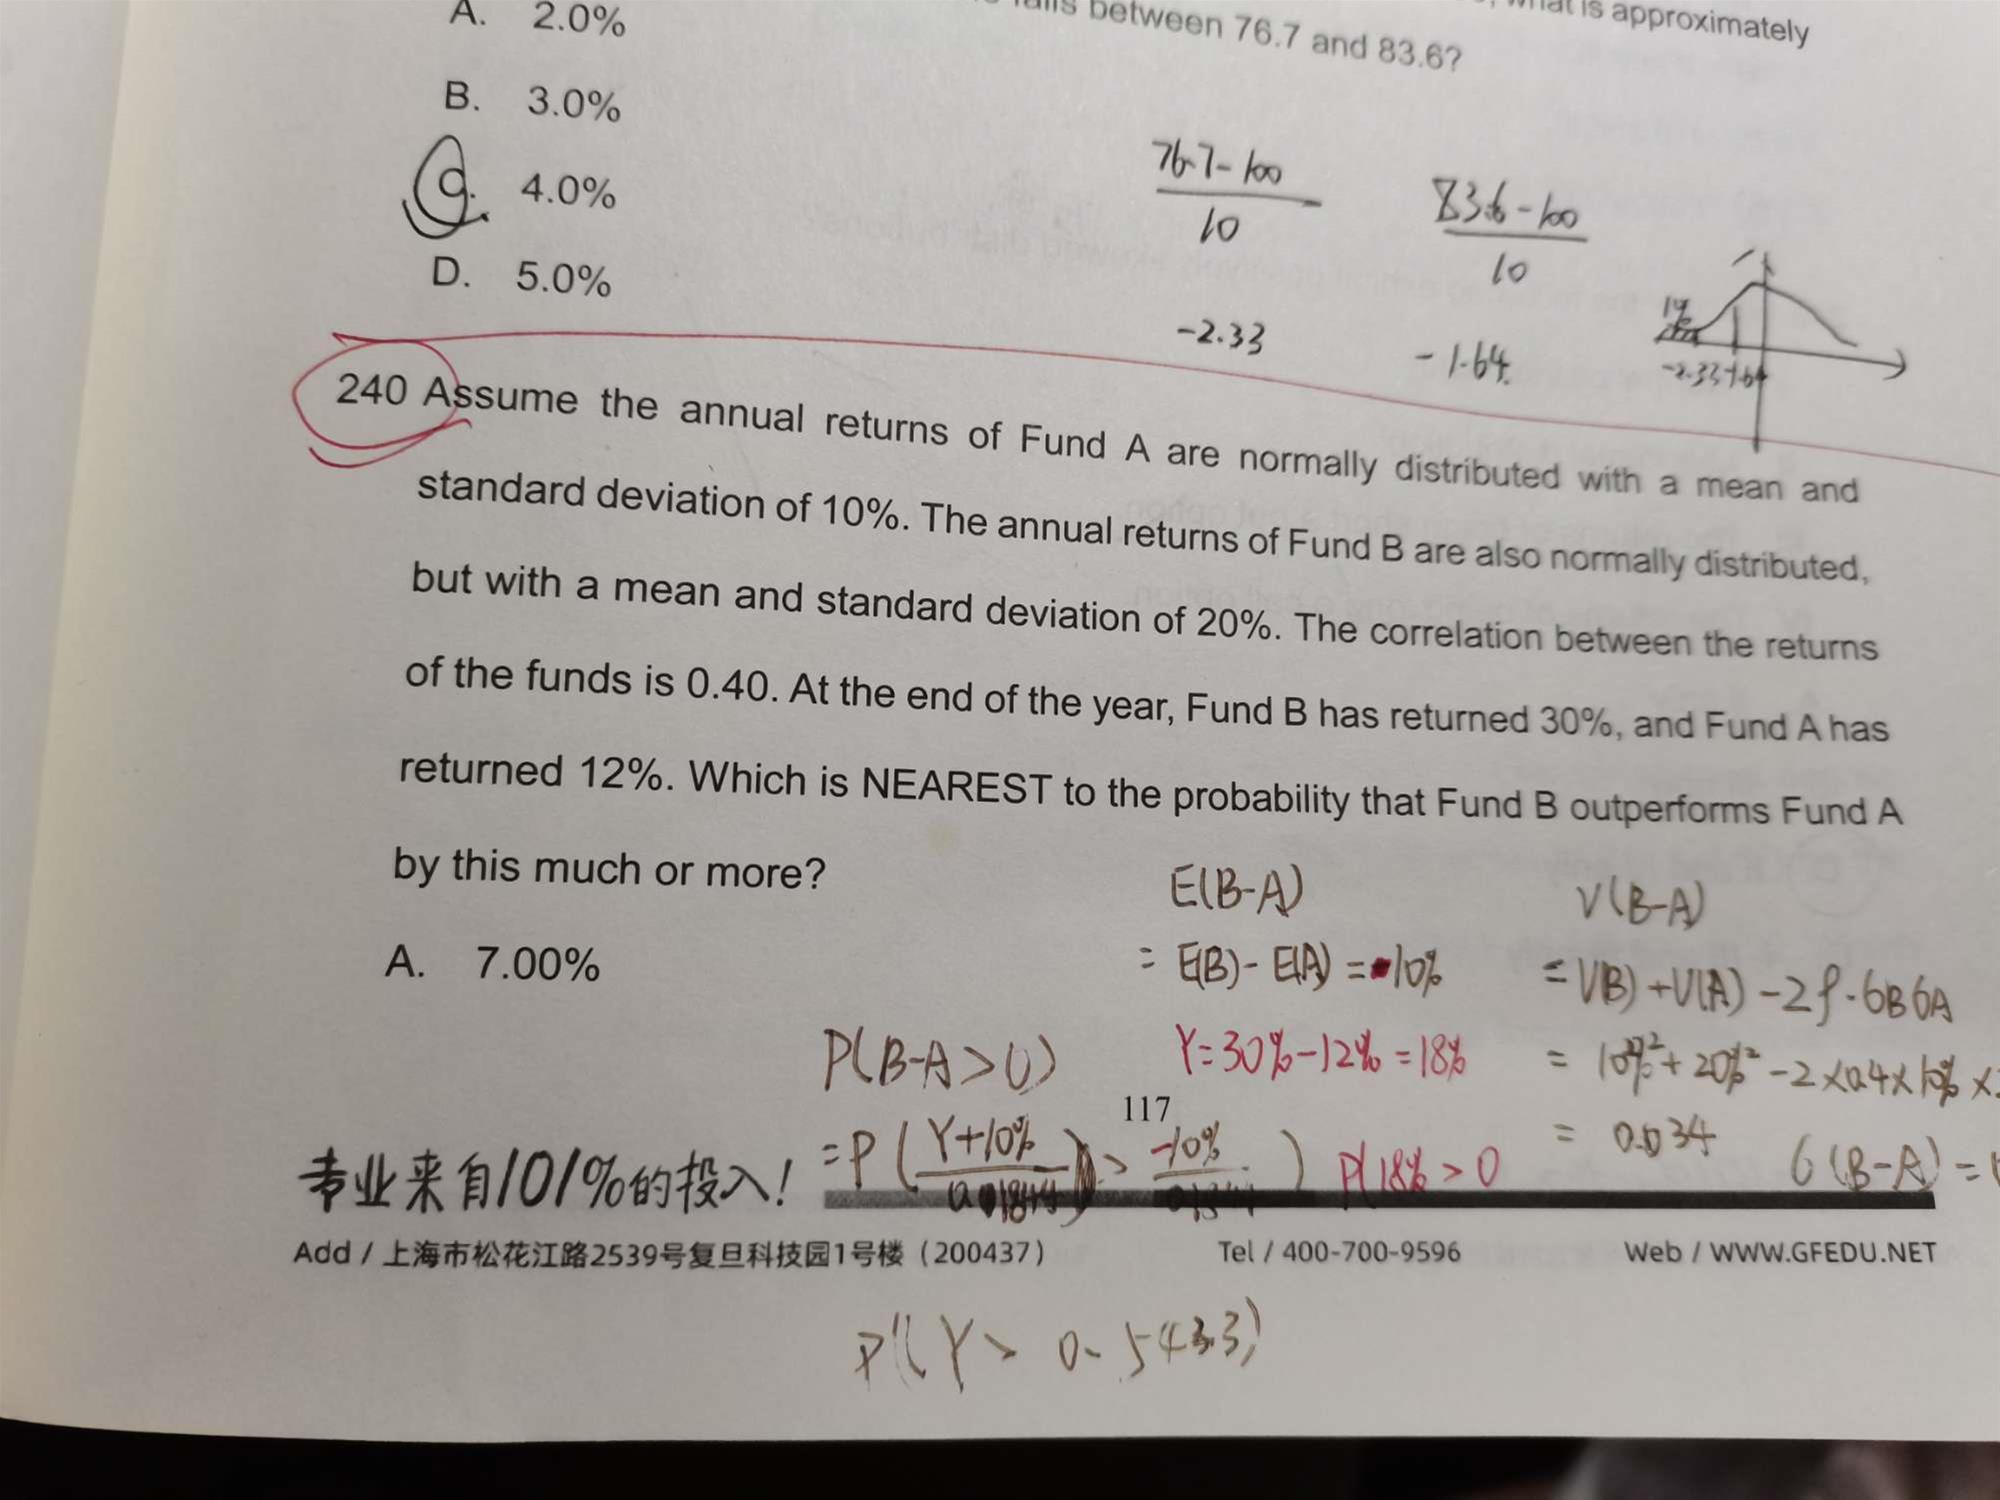 A. 2.0%
what is approximately
between 76.7 and 83.6?
B. 3.0%
C. 4.0%
D. 5.0%
76.7-100
10
83.6-100
10
-2.33
-1.64
1%
-2.33 -1.64
240 Assume the annual returns of Fund A are normally distributed with a mean and
standard deviation of 10%. The annual returns of Fund B are also normally distributed,
but with a mean and standard deviation of 20%. The correlation between the returns
of the funds is 0.40. At the end of the year, Fund B has returned 30%, and Fund A has
returned 12%. Which is NEAREST to the probability that Fund B outperforms Fund A
by this much or more?
E(B-A)
V(B-A)
A. 7.00%
= E(B)- E(A) = 10%
= V(B)+V(A)-2ρ·σBσA
P(B-A>0)
Y=30%-12%=18%
= 10%²+20%²-2×0.4×10%×
117
=P(Y+10%
> -10%
)
P(18%>0
= 0.034
σ(B-A)=
专业来自101%的投入!
Add / 上海市松花江路2539号复旦科技园1号楼（200437）
Tel / 400-700-9596
Web / WWW.GFEDU.NET
P(Y> 0.5433)